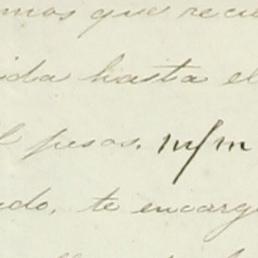 mos que recu
ida hasta el
l pesos. m/m
do, te encarg